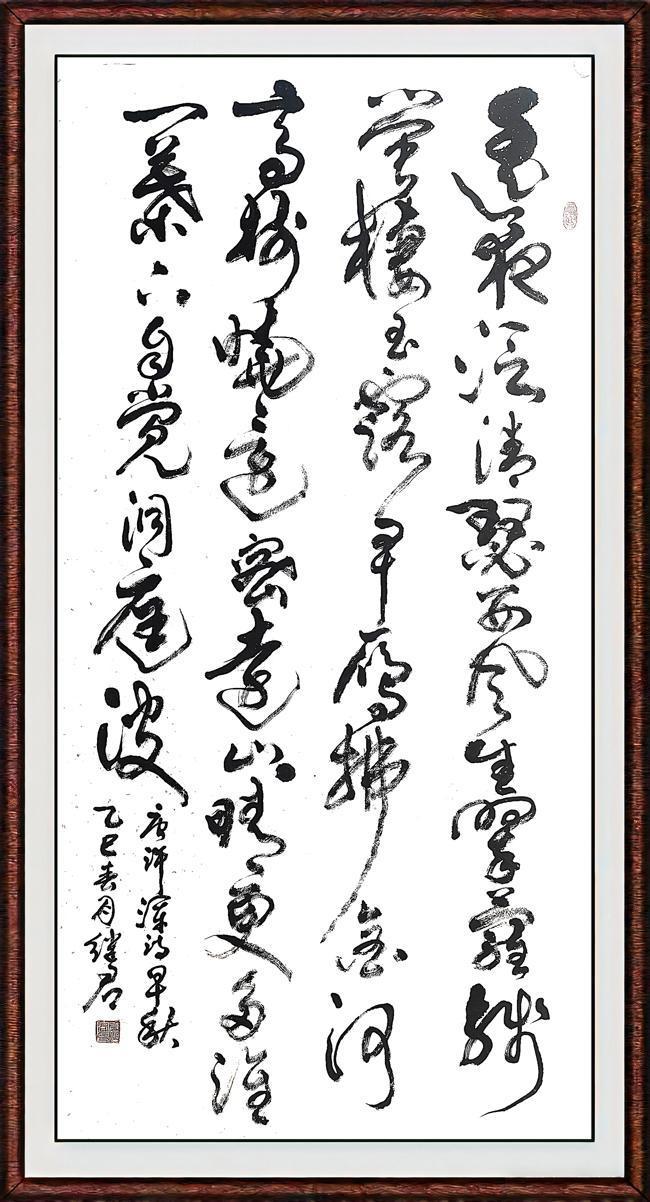 遥夜泛清瑟西风生翠蘿残
萤棲玉露早雁拂金河
高树晓还密远山晴更多淮
一葉下自觉洞庭波
唐许浑诗早秋
乙巳春月继君